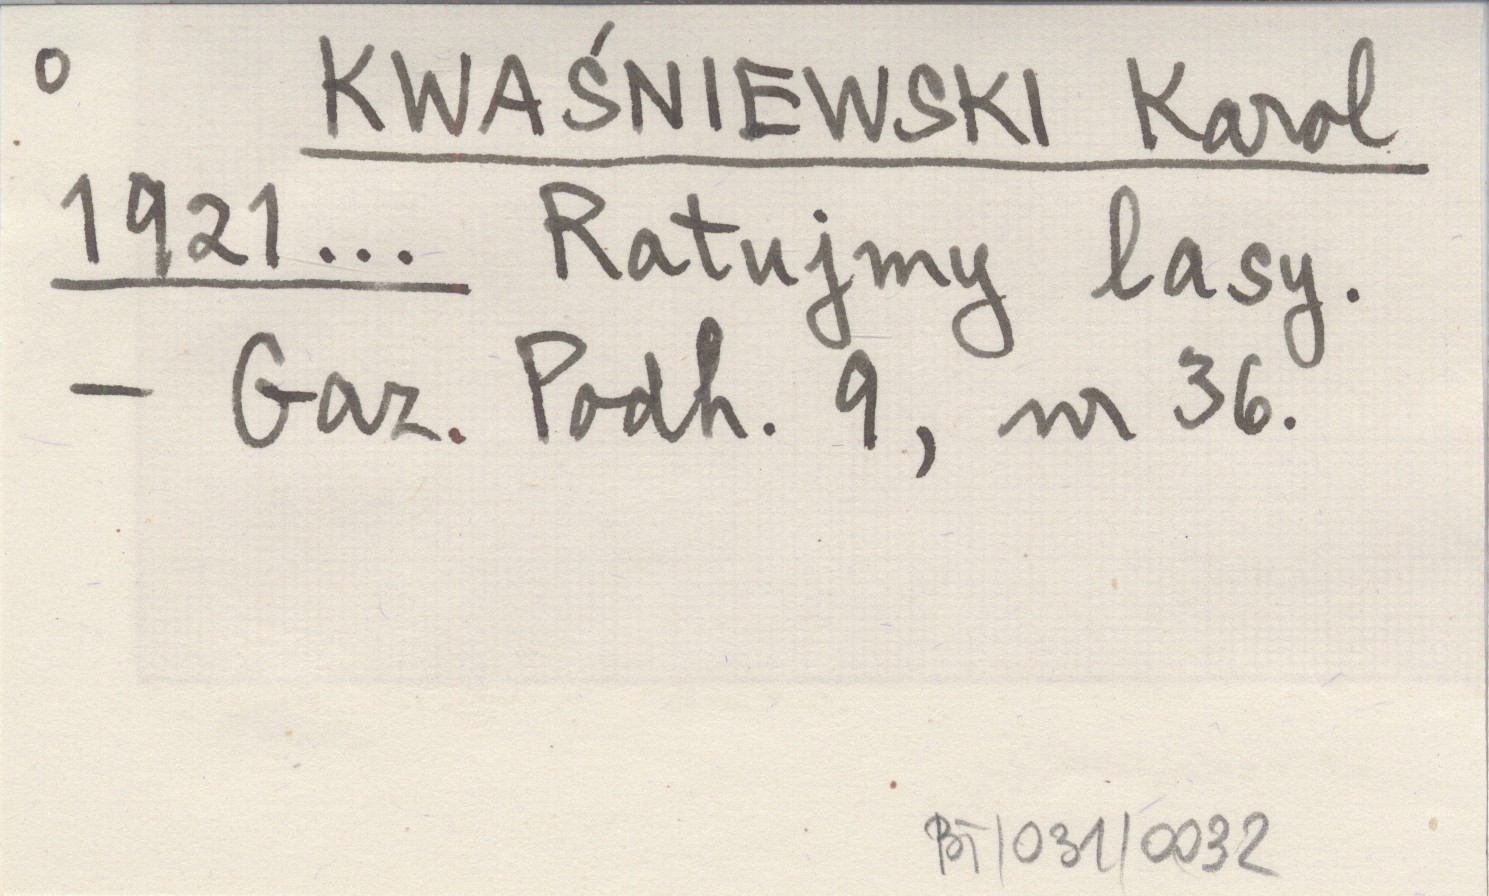 o KWAŚNIEWSKI Karol
1921... Ratujmy lasy.
– Gaz. Podh. 9, nr 36.
BT/031/0032